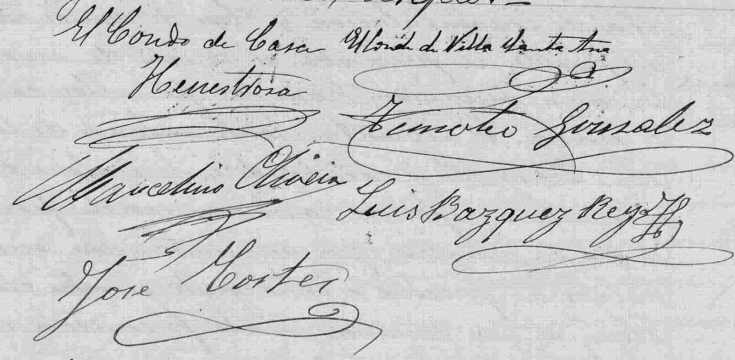 El Conde de Casa
Henestrosa
El Conde de Villa Santa Ana
Timoteo Gonsalez
Marcelino Oliveira
Luis Bazquez Rey
José Cortes